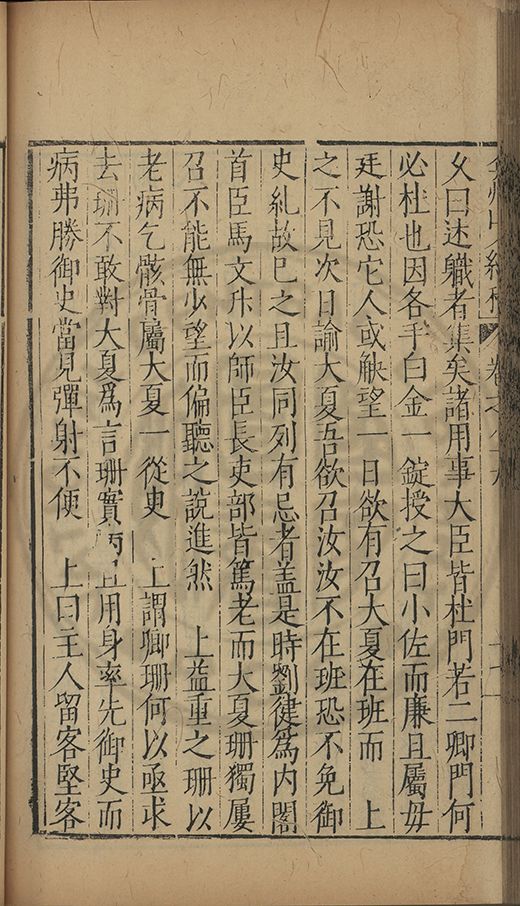 卷之八
乆曰述軄者集矣諸用事大臣皆杜門若二卿門何
必杜也因各手白金一錠授之曰小佐而廉且屬毋
廷謝恐它人或觖望一日欲有召大夏在班而　上
之不見次日諭大夏吾欲召汝汝不在班恐不免御
史糺故已之且汝同列有忌者葢是時劉健為內閣
首臣馬文升以師臣長吏部皆篤老而大夏珊獨屢
召不能無少望而偏聽之說進然　上益重之珊以
老病乞骸骨屬大夏一從臾　上謂卿珊何以亟求
去珊不敢對大夏為言珊實病且用身率先御史而
病弗勝御史當見彈射不便　上曰主人留客堅客